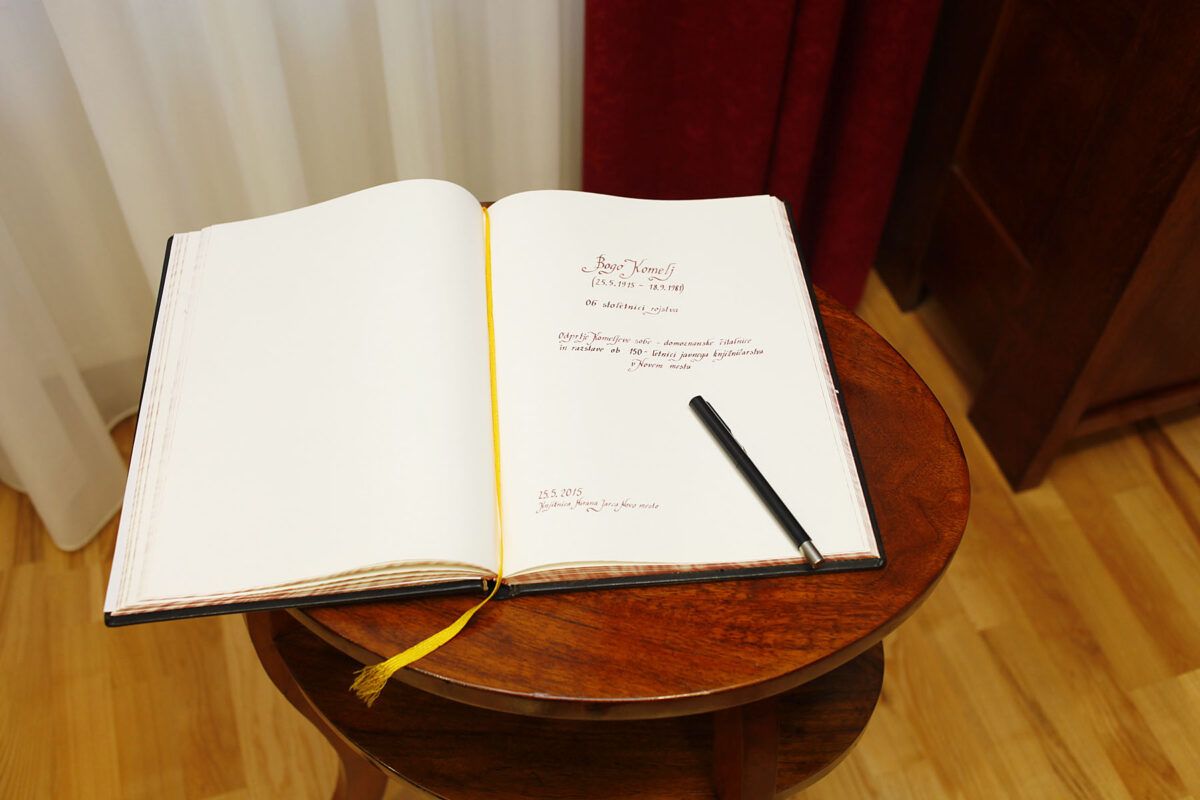 Bogo Komelj
(25.5.1915 – 18.9.1981)
Ob stoletnici rojstva
Odprtje Komeljeve sobe - domoznanske čitalnice
in razstave ob 150-letnici javnega knjižničarstva
v Novem mestu
25.5.2015
Knjižnica Mirana Jarca Novo mesto